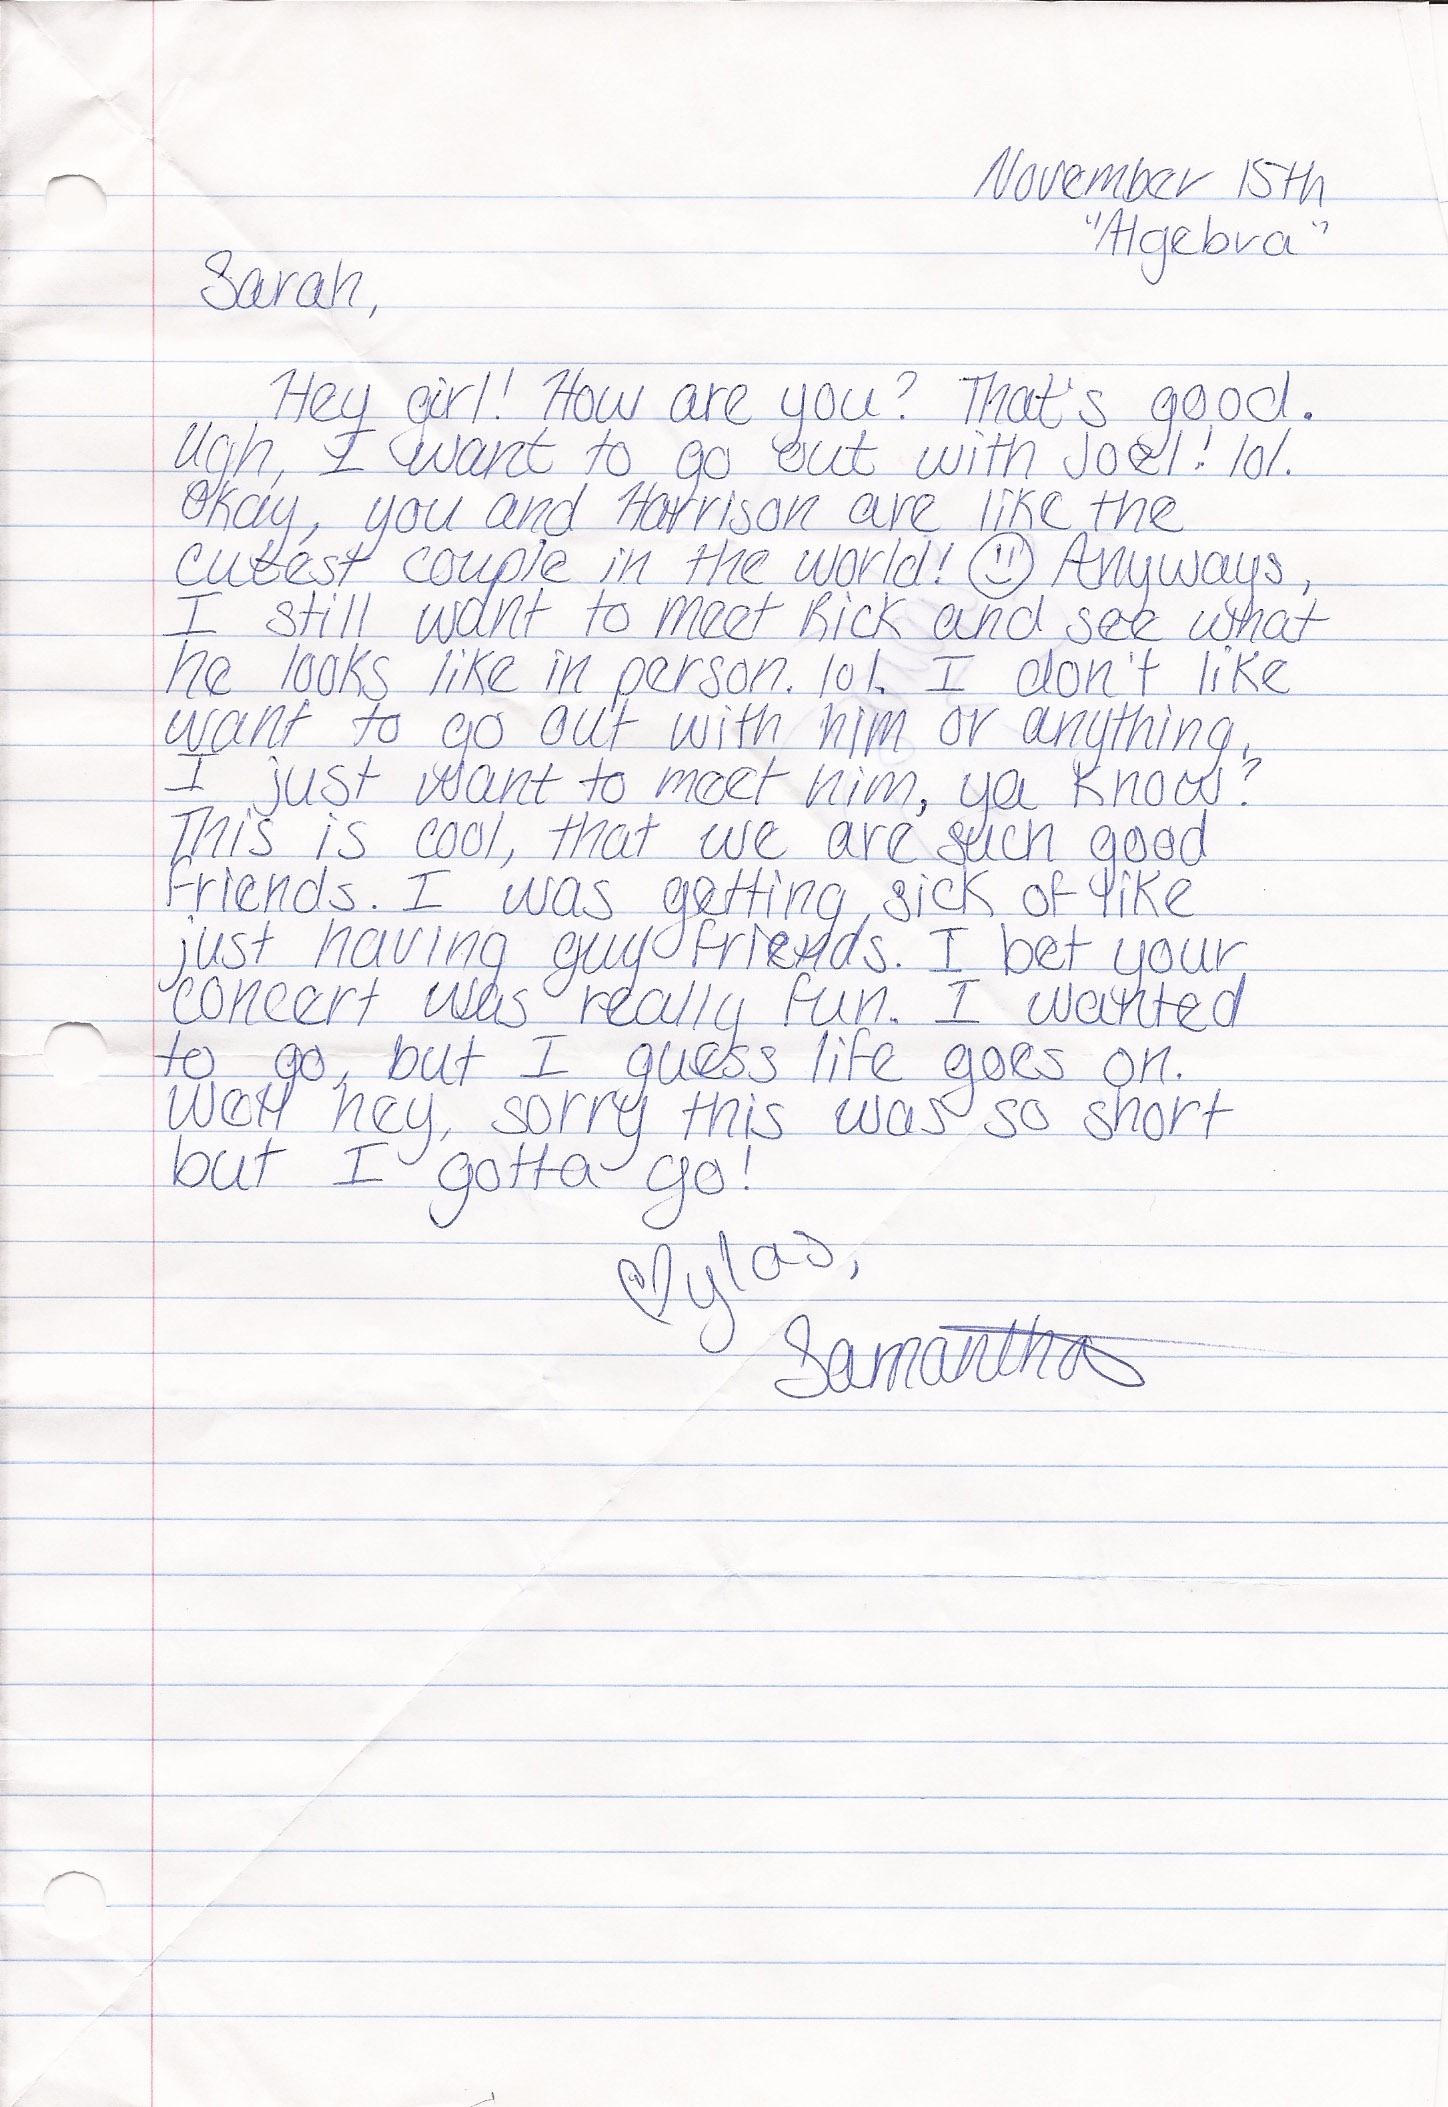 November 15th
"Algebra"
Sarah,
Hey girl! How are you? That's good.
Ugh, I want to go out with Joel! lol.
Okay, you and Harrison are like the
cutest couple in the world! Anyways,
I still want to meet Rick and see what
he looks like in person. lol. I don't like
want to go out with him or anything,
I just want to meet him, ya know?
This is cool, that we are such good
friends. I was getting sick of like
just having guy friends. I bet your
concert was really fun. I wanted
to go, but I guess life goes on.
Well hey, sorry this was so short
but I gotta go!
♡ylas,
Samantha